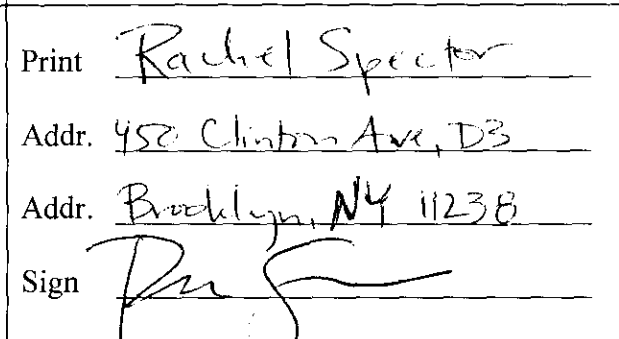 Print Rachel Spector
Addr. 450 Clinton Ave, D3
Addr. Brooklyn, NY 11238
Sign